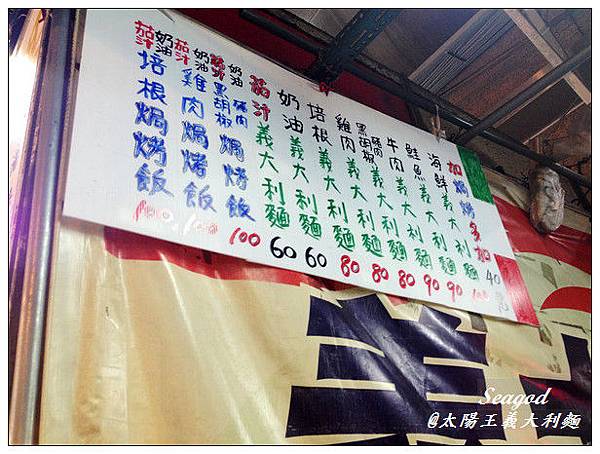 茄汁奶油培根焗烤飯 100
茄汁奶油雞肉焗烤飯 100
茄汁奶油黑胡椒豬肉焗烤飯 100
茄汁義大利麵 60
奶油義大利麵 60
培根義大利麵 80
雞肉義大利麵 80
黑胡椒豬肉義大利麵 80
牛肉義大利麵 90
鮭魚義大利麵 90
海鮮義大利麵 100
加焗烤多加40元
Seagod
@太陽王義大利麵